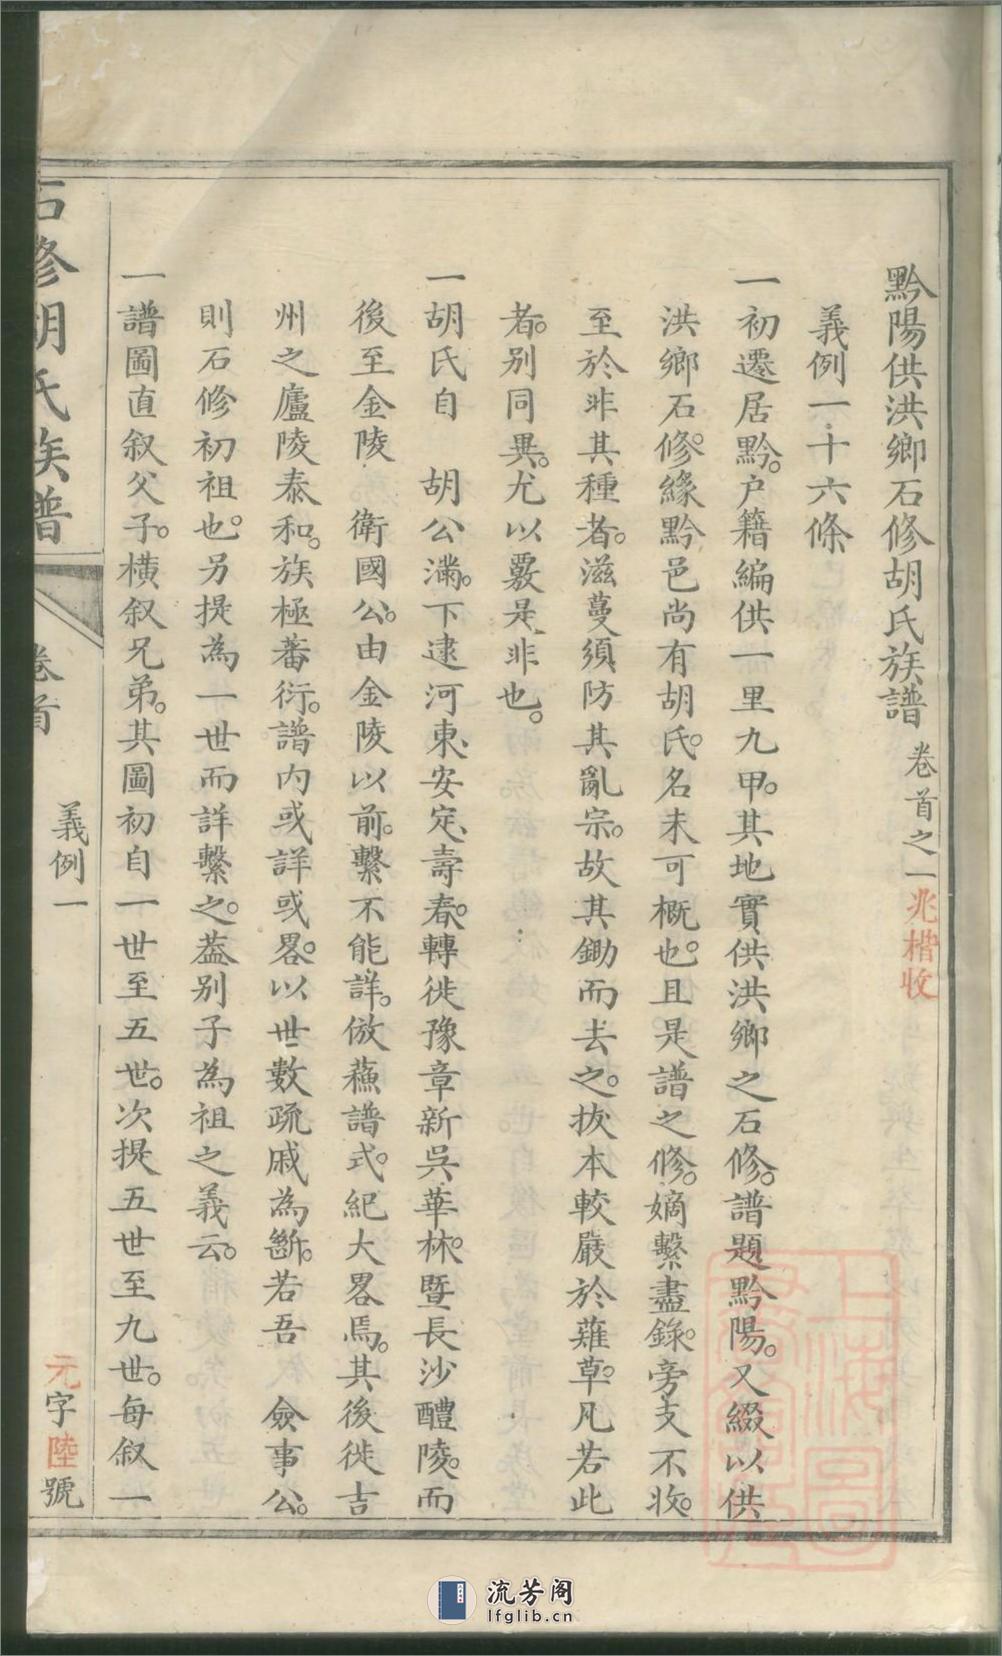 黔陽供洪鄉石修胡氏族譜 卷首之一 兆楷收
義例一十六條
一初遷居黔。户籍編供一里九甲。其地實供洪鄉之石修。譜題黔陽。又綴以供
洪鄉石修。緣黔邑尚有胡氏。名未可概也。且是譜之修。嫡繫盡錄。旁支不收。
至於非其種者。滋蔓須防其亂宗。故其鋤而去之。拔本較嚴於薙草。凡若此
者。別同異。尤以覈是非也。
一胡氏自 胡公滿。下逮河東、安定、壽春。轉徙豫章新吳華林。暨長沙醴陵。而
後至金陵 衛國公。由金陵以前。繫不能詳。倣蘓譜式。紀大畧焉。其後徙吉
州之廬陵泰和。族極蕃衍。譜内或詳或畧。以世數疏戚為斷。若吾 僉事公。
則石修初祖也。另提為一世而詳繫之。葢別子為祖之義云。
一譜圖直叙父子。横叙兄弟。其圖初自一世至五世。次提五世至九世。每叙一
石修胡氏族譜
卷首
義例一
元字陸號
上海圖書館藏
流芳阁
lfglib.cn